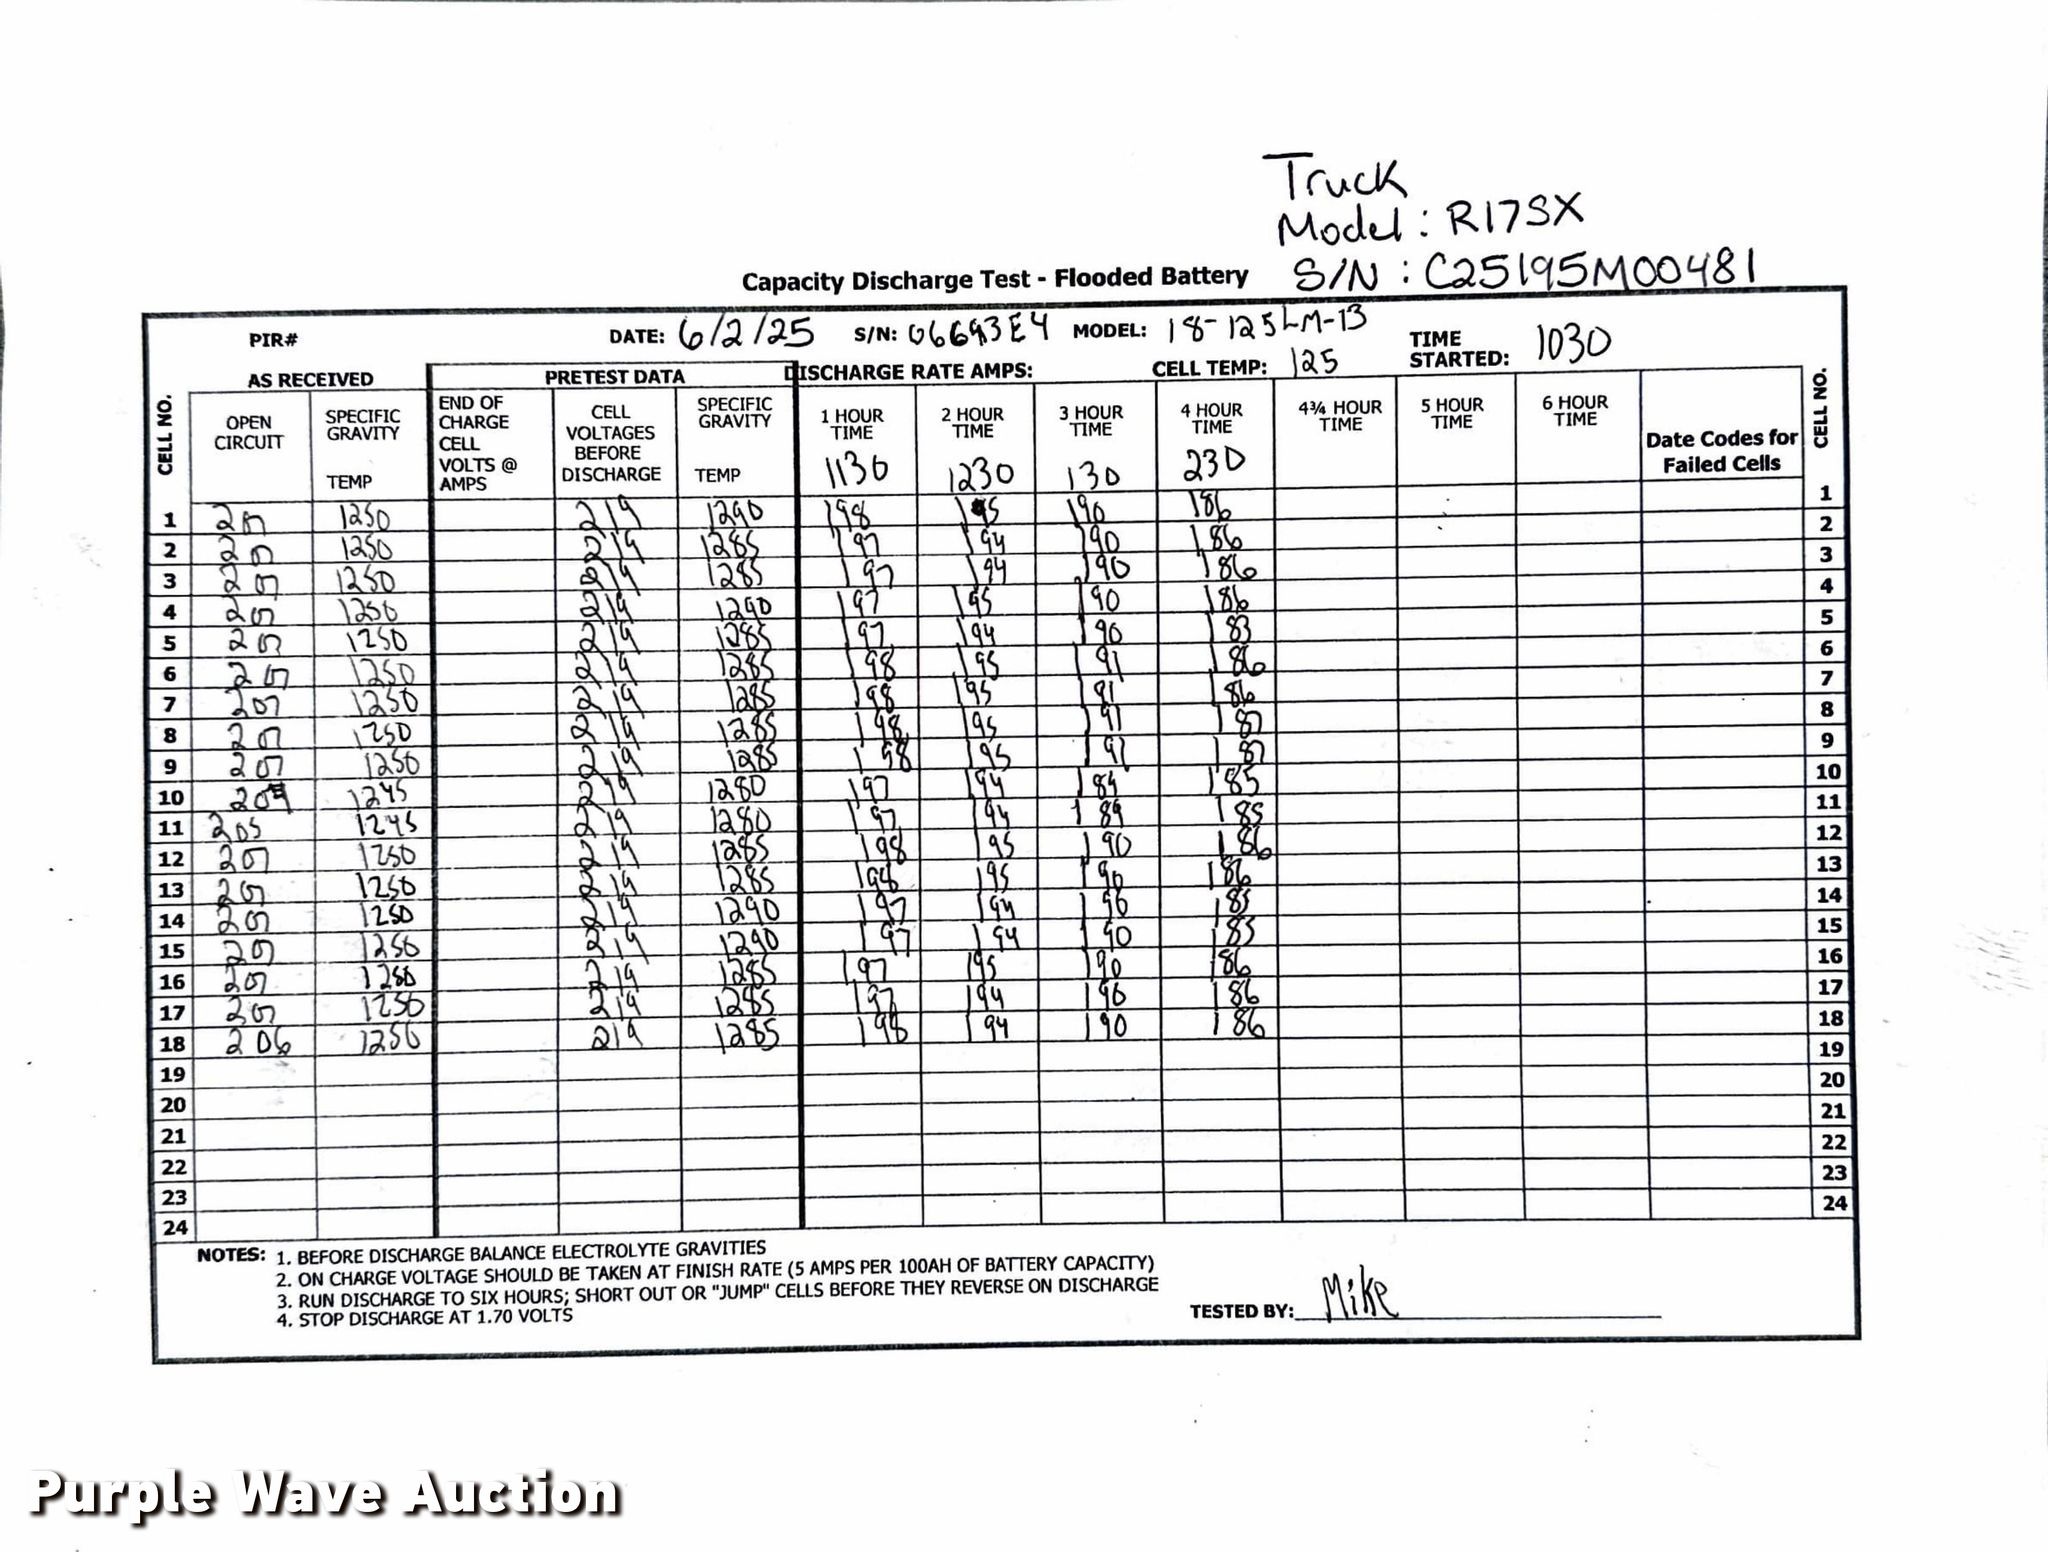 Truck
Model: R17SX
S/N: C25195M00481
Capacity Discharge Test - Flooded Battery
PIR# DATE: 6/2/25 S/N: MODEL: 18-125LM-13 TIME STARTED: 1030
AS RECEIVED PRETEST DATA DISCHARGE RATE AMPS: CELL TEMP: 125
CELL NO. OPEN CIRCUIT SPECIFIC GRAVITY TEMP END OF CHARGE CELL VOLTS @ AMPS CELL VOLTAGES BEFORE DISCHARGE SPECIFIC GRAVITY TEMP 1 HOUR TIME 1130 2 HOUR TIME 1230 3 HOUR TIME 130 4 HOUR TIME 230 4¾ HOUR TIME 5 HOUR TIME 6 HOUR TIME Date Codes for Failed Cells CELL NO.
1 207 1250 219 1290 198 195 190 186 1
2 207 1250 219 1285 197 194 190 186 2
3 207 1250 219 1285 197 194 190 186 3
4 207 1250 219 1290 197 195 190 186 4
5 207 1250 219 1285 197 194 190 183 5
6 207 1250 219 1285 198 195 191 186 6
7 207 1250 219 1285 198 195 191 186 7
8 207 1250 219 1285 198 195 191 187 8
9 207 1250 219 1285 198 195 191 187 9
10 1245 219 1280 197 194 189 185 10
11 205 1245 219 1280 197 194 189 185 11
12 207 1250 219 1285 198 195 190 186 12
13 207 1250 219 1285 198 195 190 186 13
14 207 1250 219 1290 197 194 190 185 14
15 207 1250 219 1290 197 194 190 185 15
16 207 1250 219 1285 197 195 190 186 16
17 207 1250 219 1285 197 194 190 186 17
18 206 1250 219 1285 198 194 190 186 18
19 19
20 20
21 21
22 22
23 23
24 24
NOTES: 1. BEFORE DISCHARGE BALANCE ELECTROLYTE GRAVITIES
2. ON CHARGE VOLTAGE SHOULD BE TAKEN AT FINISH RATE (5 AMPS PER 100AH OF BATTERY CAPACITY)
3. RUN DISCHARGE TO SIX HOURS; SHORT OUT OR "JUMP" CELLS BEFORE THEY REVERSE ON DISCHARGE
4. STOP DISCHARGE AT 1.70 VOLTS
TESTED BY: Mike
Purple Wave Auction